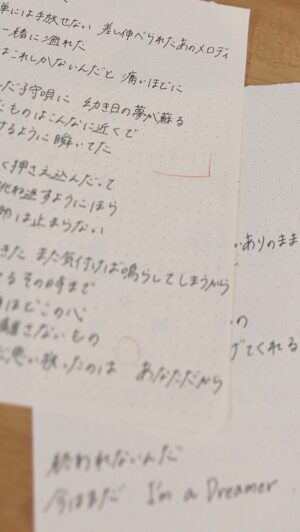 単には手放せない 差し伸べられたあのメロディ
一緒に溢れた
はこれしかないんだと 痛いほどに
だ子守唄に 幼き日の夢が蘇る
ものはこんなに近くで
るように瞬いてた
く押さえ込んだって
返すようにほら
は止まらない
きた また気付けば鳴らしてしまうから
るその時まで
ほどこの心
離さないもの
思い救ったのは あなただから
いありのまま
の
げてくれる
終われないんだ
今はまだ I'm a Dreamer